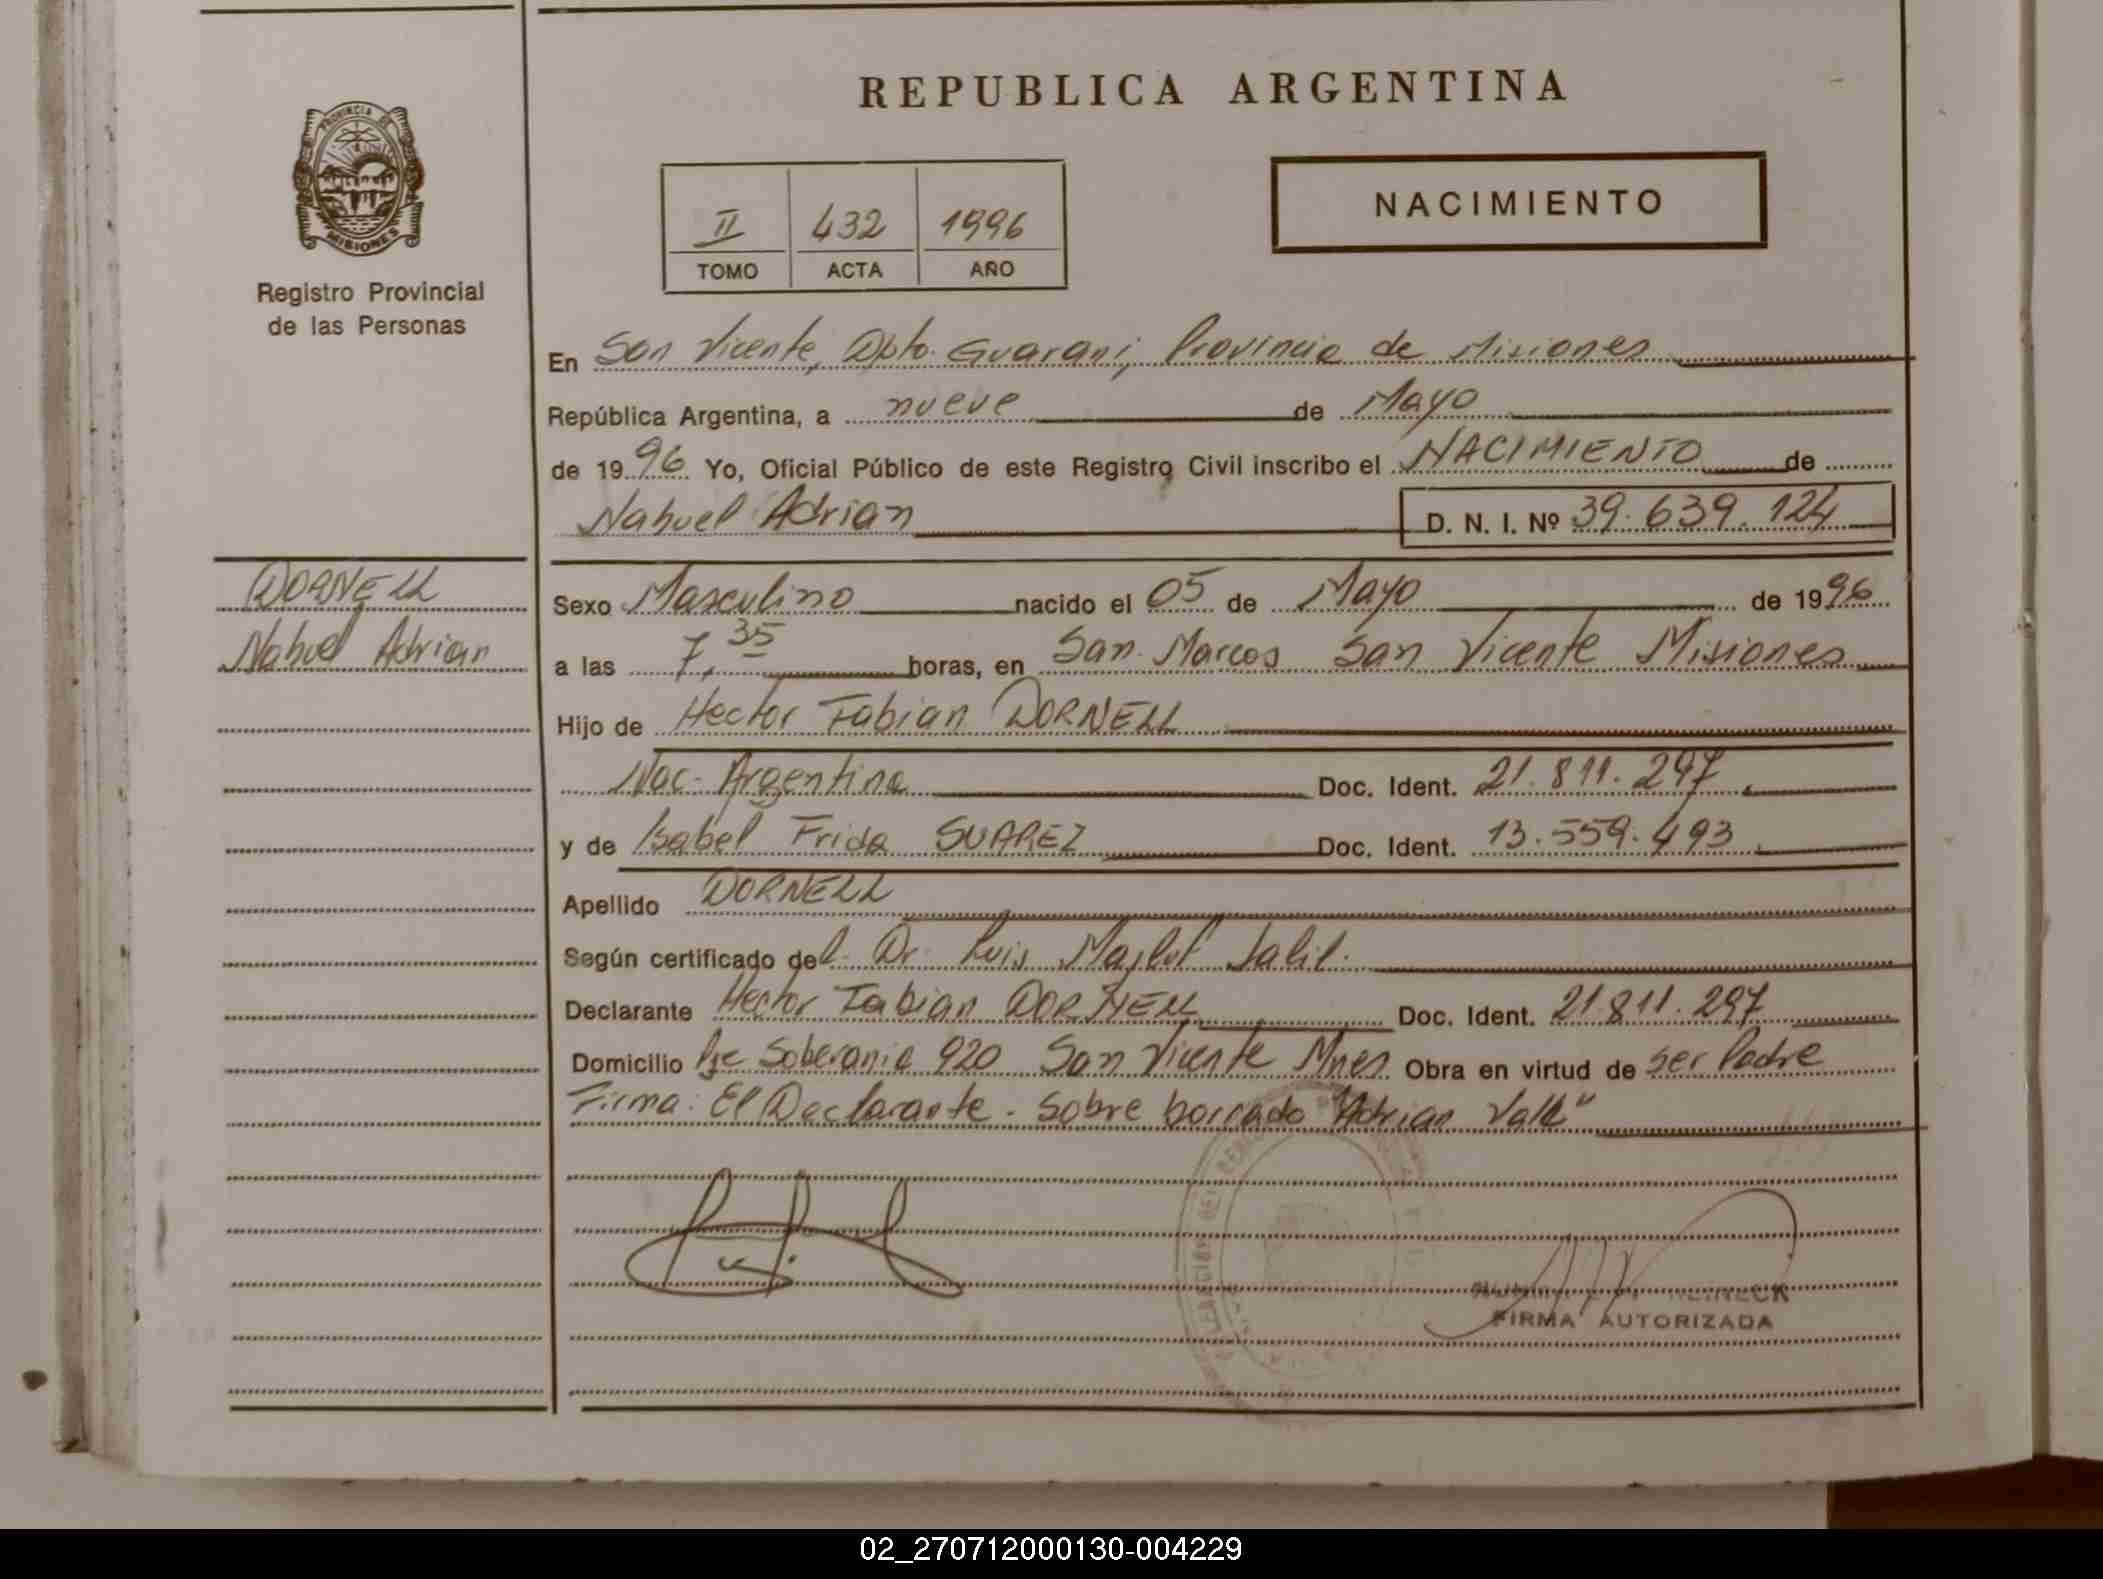 REPUBLICA ARGENTINA
PROVINCIA DE
MISIONES
Registro Provincial
de las Personas
II 432 1996
TOMO ACTA AÑO
NACIMIENTO
En San Vicente, Dpto. Guarani, Provincia de Misiones
República Argentina, a nueve de Mayo
de 1996 Yo, Oficial Público de este Registro Civil inscribo el NACIMIENTO de
Nahuel Adrian D. N. I. Nº 39.639.124
DORNELL
Nahuel Adrian
Sexo Masculino nacido el 05 de Mayo de 1996
a las 7,35 horas, en San Marcos San Vicente Misiones
Hijo de Hector Fabian DORNELL
Nac. Argentina Doc. Ident. 21.811.297
y de Isabel Frida SUAREZ Doc. Ident. 13.559.493
Apellido DORNELL
Según certificado del Dr. Luis Jalil.
Declarante Hector Fabian DORNELL Doc. Ident. 21.811.297
Domicilio Pje Soberania 920 San Vicente Mnes Obra en virtud de ser Padre
Firma: El Declarante. Sobre borrado "Adrian Vale"
FIRMA AUTORIZADA
02_270712000130-004229